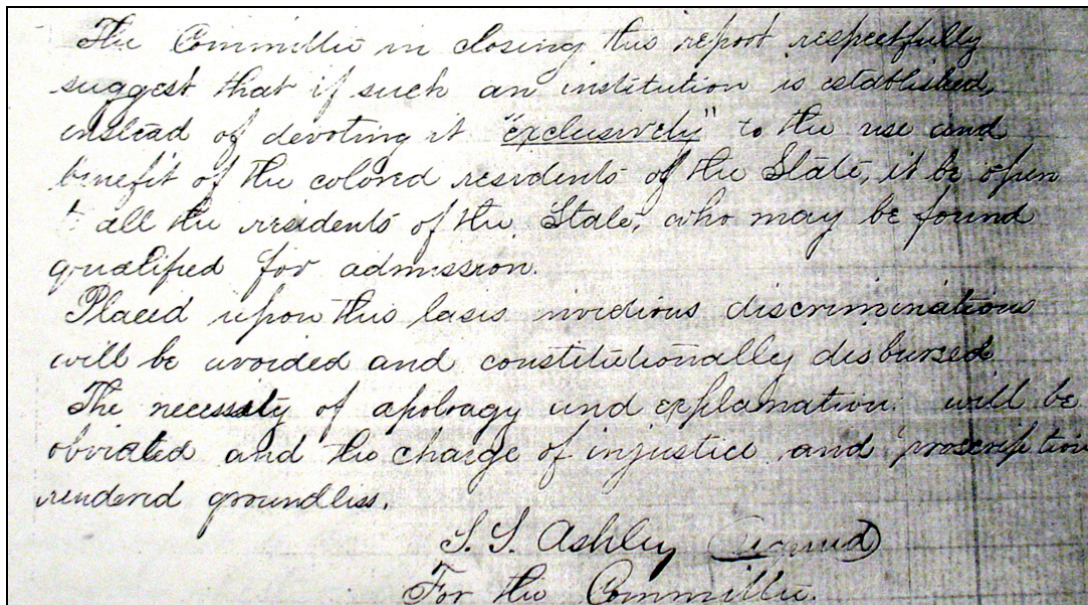 The Committee in closing this report respectfully
suggest that if such an institution is established,
instead of devoting it "exclusively" to the use and
benefit of the colored residents of the State, it be open
to all the residents of the State, who may be found
qualified for admission.
Placed upon this basis invidious discriminations
will be avoided and constitutionally disbursed
The necessity of apology and explanation will be
obviated and the charge of injustice and proscription
rendered groundless.
S. S. Ashley (Signed)
For the Committee.